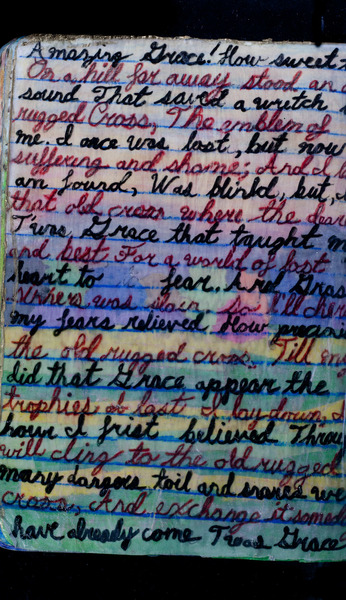 Amazing Grace! How sweet
On a hill far away stood an
sound That saved a wretch
rugged Cross, The emblem of
me. I once was lost, but now
suffering and shame; And I
am found, Was blind, but,
that old cross where the dear
T'was Grace that taught m
and best For a world of lost
heart to fear. And Gras
sinners was slain So I'll cher
my fears relieved How precio
the old rugged cross, Till my
did that Grace appear the
trophies at last I lay down,
hour I frist believed Throu
will cling to the old rugged
many dangers, toil and snares we
cross, And exchange it someda
have already come T'was Grace